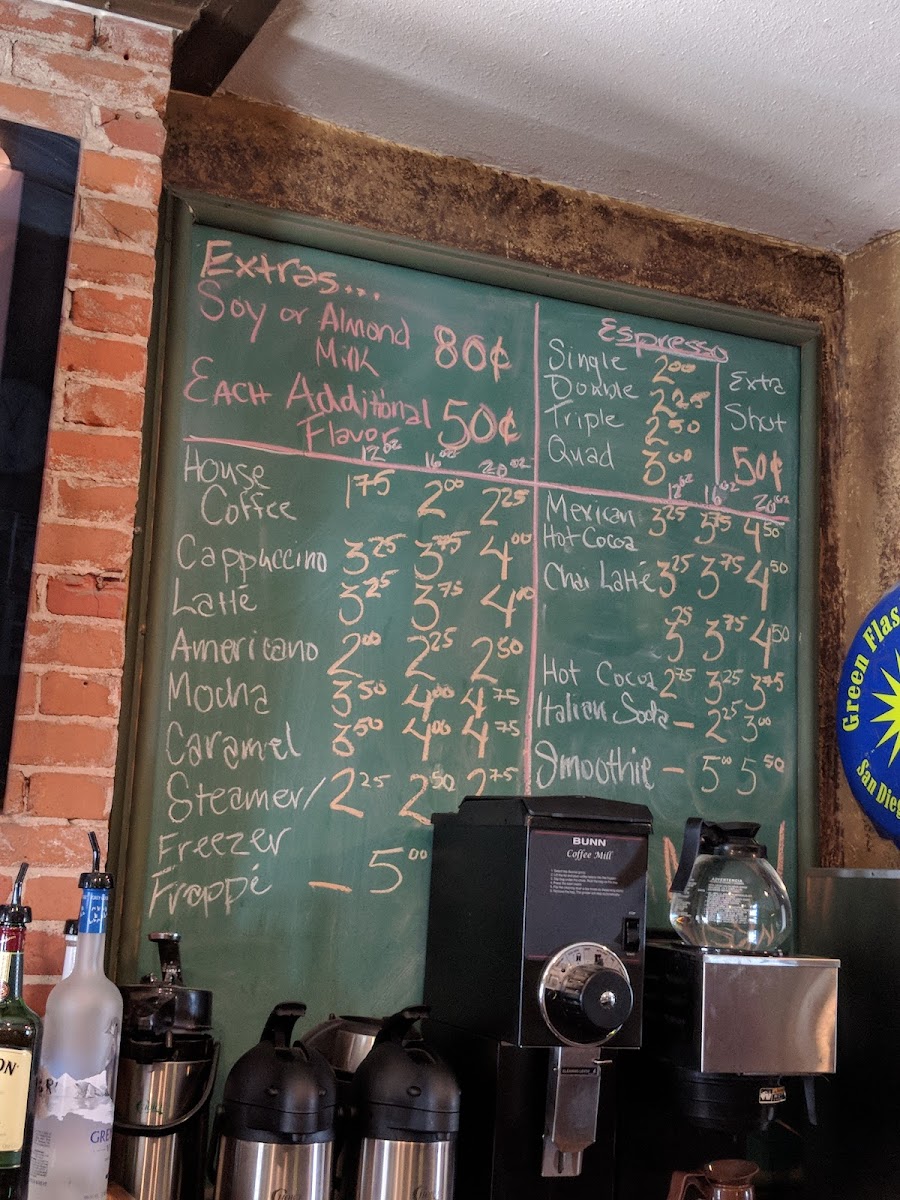 Extras...
Soy or Almond
Milk 80¢
Each Additional
Flavor 50¢
12oz 16oz 20oz
House
Coffee 1 75 2 00 2 25
Cappuccino 3 25 3 75 4 00
Latte 3 25 3 75 4 00
Americano 2 00 2 25 2 50
Mocha 3 50 4 00 4 75
Caramel 3 50 4 00 4 75
Steamer/ 2 25 2 50 2 75
Freezer
Frappé — 5 00
Espresso
Single 2 00
Double 2 25
Triple 2 50
Quad 3 00
Extra
Shot
50¢
12oz 16oz 20oz
Mexican 3 25 3 75 4 50
Hot Cocoa
Chai Latte 3 25 3 75 4 50
3 25 3 75 4 50
Hot Cocoa 2 75 3 25 3 75
Italian Soda — 2 25 3 00
Smoothie — 5 00 5 50
BUNN
Coffee Mill
Green Flas
San Dieg
ADVERTENCIA
ON
GRE